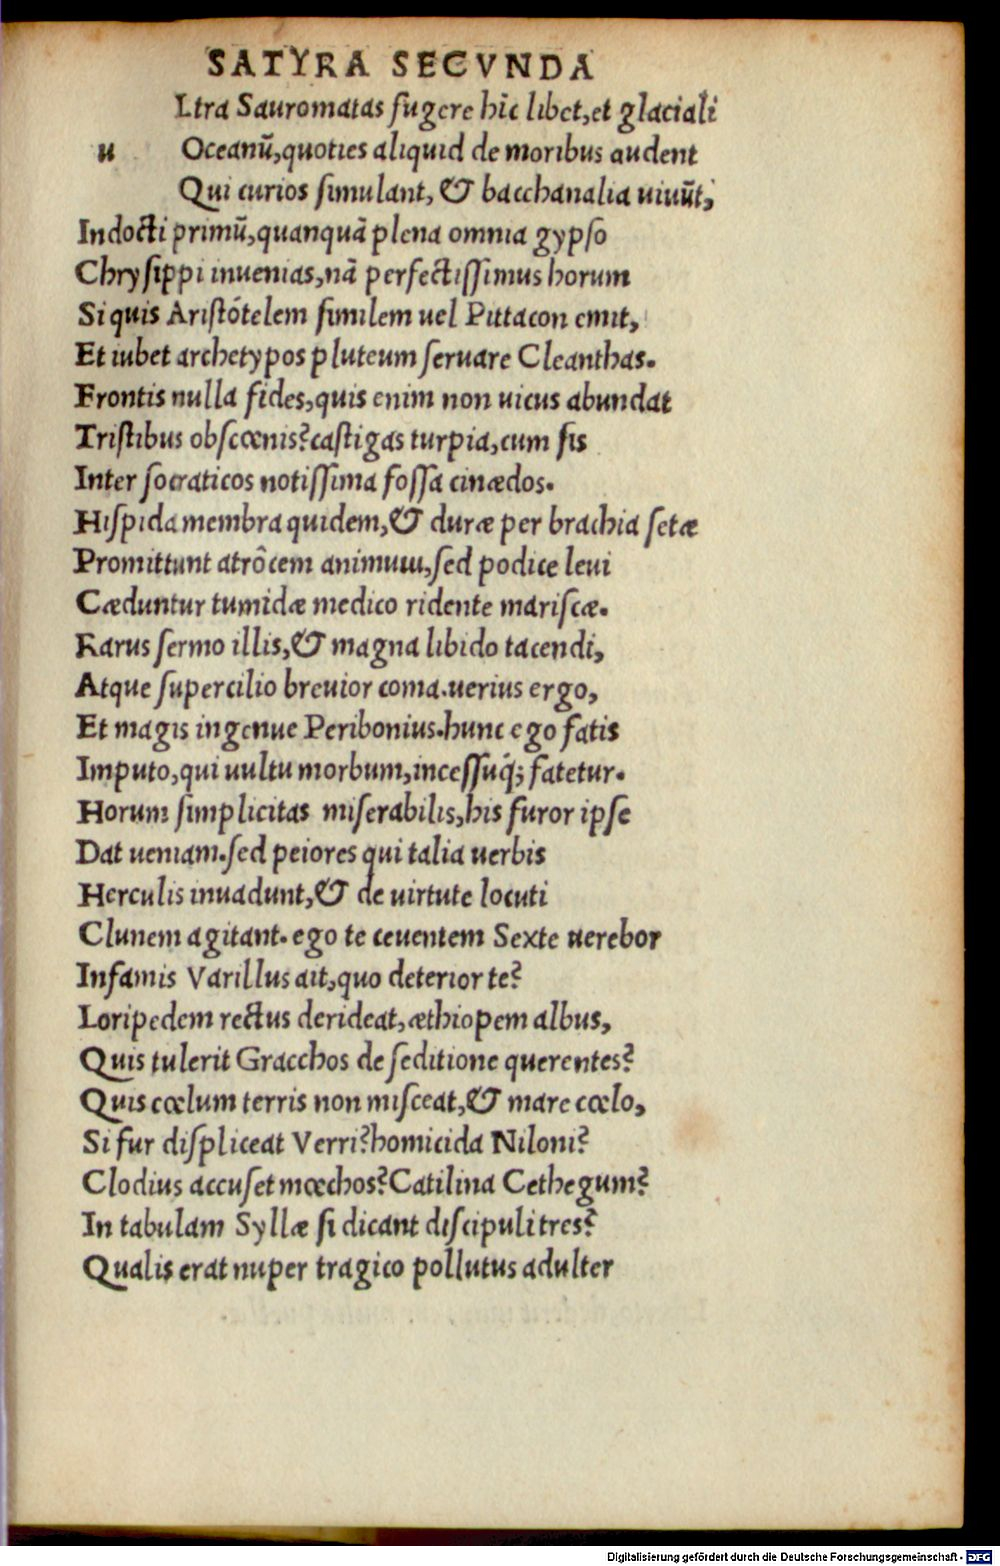 SATYRA SECVNDA
Ltra Sauromatas fugere hîc libet, et glaciali
u Oceanũ, quoties aliquid de moribus audent
Qui curios simulant, & bacchanalia uiuũt,
Indocti primũ, quanquã plena omnia gypso
Chrysippi inuenias, nã perfectissimus horum
Si quis Aristótelem similem uel Pittacon emit,
Et iubet archetypos pluteum seruare Cleanthas.
Frontis nulla fides, quis enim non uicus abundat
Tristibus obscœnis? castigas turpia, cum sis
Inter socraticos notissima fossa cinædos.
Hispida membra quidem, & duræ per brachia setæ
Promittunt atrôcem animum, sed podice leui
Cæduntur tumidæ medico ridente mariscæ.
Rarus sermo illis, & magna libido tacendi,
Atque supercilio breuior coma. uerius ergo,
Et magis ingenue Peribonius. hunc ego fatis
Imputo, qui uultu morbum, incessuq́; fatetur.
Horum simplicitas miserabilis, his furor ipse
Dat ueniam. sed peiores qui talia uerbis
Herculis inuadunt, & de uirtute locuti
Clunem agitant. ego te ceuentem Sexte uerebor
Infamis Varillus ait, quo deterior te?
Loripedem rectus derideat, æthiopem albus,
Quis tulerit Gracchos de seditione querentes?
Quis cœlum terris non misceat, & mare cœlo,
Si fur displiceat Verri? homicida Niloni?
Clodius accuset mœchos? Catilina Cethegum?
In tabulam Syllæ si dicant discipuli tres?
Qualis erat nuper tragico pollutus adulter
Digitalisierung gefördert durch die Deutsche Forschungsgemeinschaft - DFG